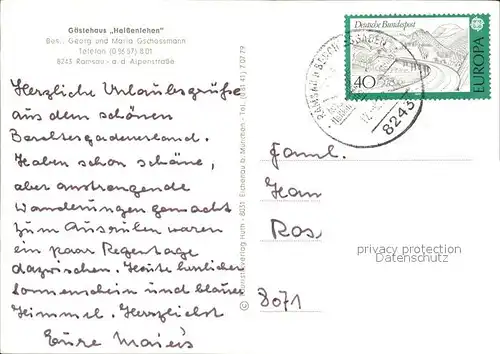 Gästehaus „Haißenlehen"
Bes.: Georg und Maria Gschossmann
Telefon (0 86 57) 8 01
8243 Ramsau - a. d. Alpenstraße
Herzliche Urlaubsgrüße
aus dem schönen
Berchtesgadenerland.
Haben schon schöne,
aber anstrengende
Wanderungen gemacht
zum Ausruhen waren
ein paar Regentage
dazwischen. Heute herrlicher
Sonnenschein und blauer
Himmel. Herzlichst
Eure Maier's
© Kunstverlag Huth - 8031 Eichenau b. München - Tel. (081 41) 7 07 79
Deutsche Bundespost
40
EUROPA
RAMSAU B BERCHTESGADEN
8243
Faml.
Ros
8071
privacy protection
Datenschutz